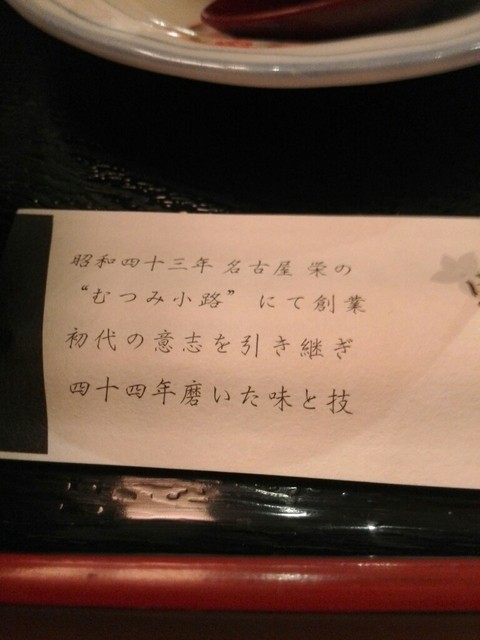 昭和四十三年 名古屋 栄の
“むつみ小路” にて創業
初代の意志を引き継ぎ
四十四年磨いた味と技